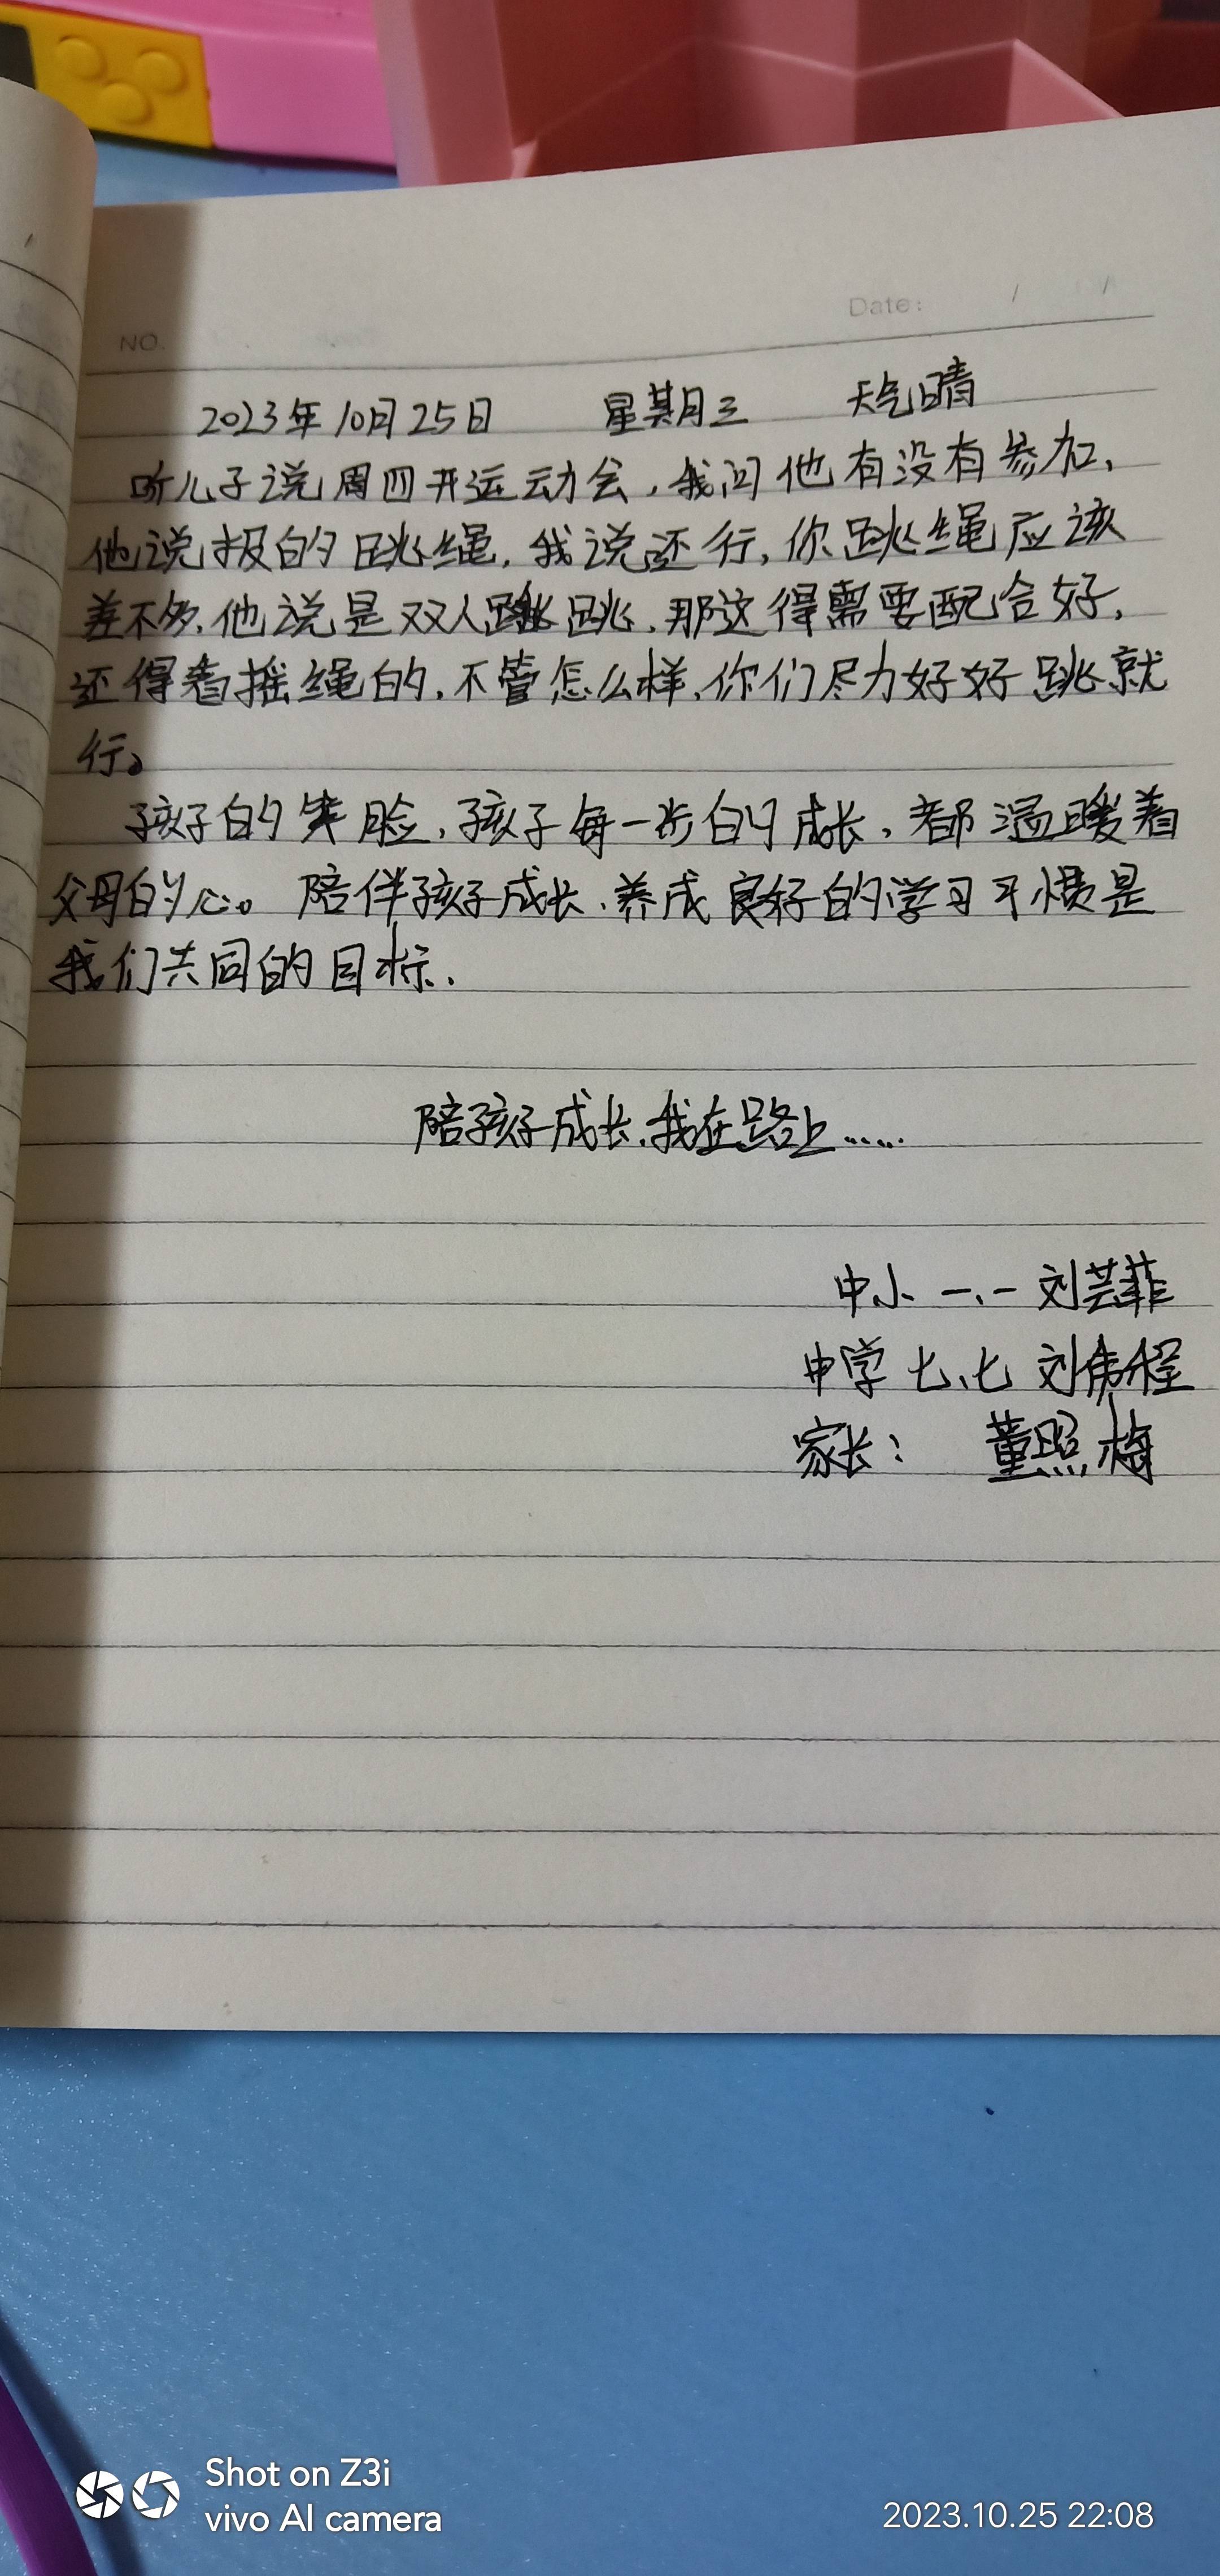 Date: / /
NO.
2023年10月25日 星期三 天气晴
听儿子说周四开运动会，我问他有没有参加，
他说报的跳绳，我说还行，你跳绳应该
差不多，他说是双人跳，那这得需要配合好，
还得看摇绳的，不管怎么样，你们尽力好好跳就
行。
孩子的笑脸，孩子每一步的成长，都温暖着
父母的心。陪伴孩子成长、养成良好的学习习惯是
我们共同的目标.
陪孩子成长，我在路上……
中小 一、一 刘芸菲
中学 七、七 刘伟程
家长： 董照梅
Shot on Z3i
vivo AI camera
2023.10.25 22:08